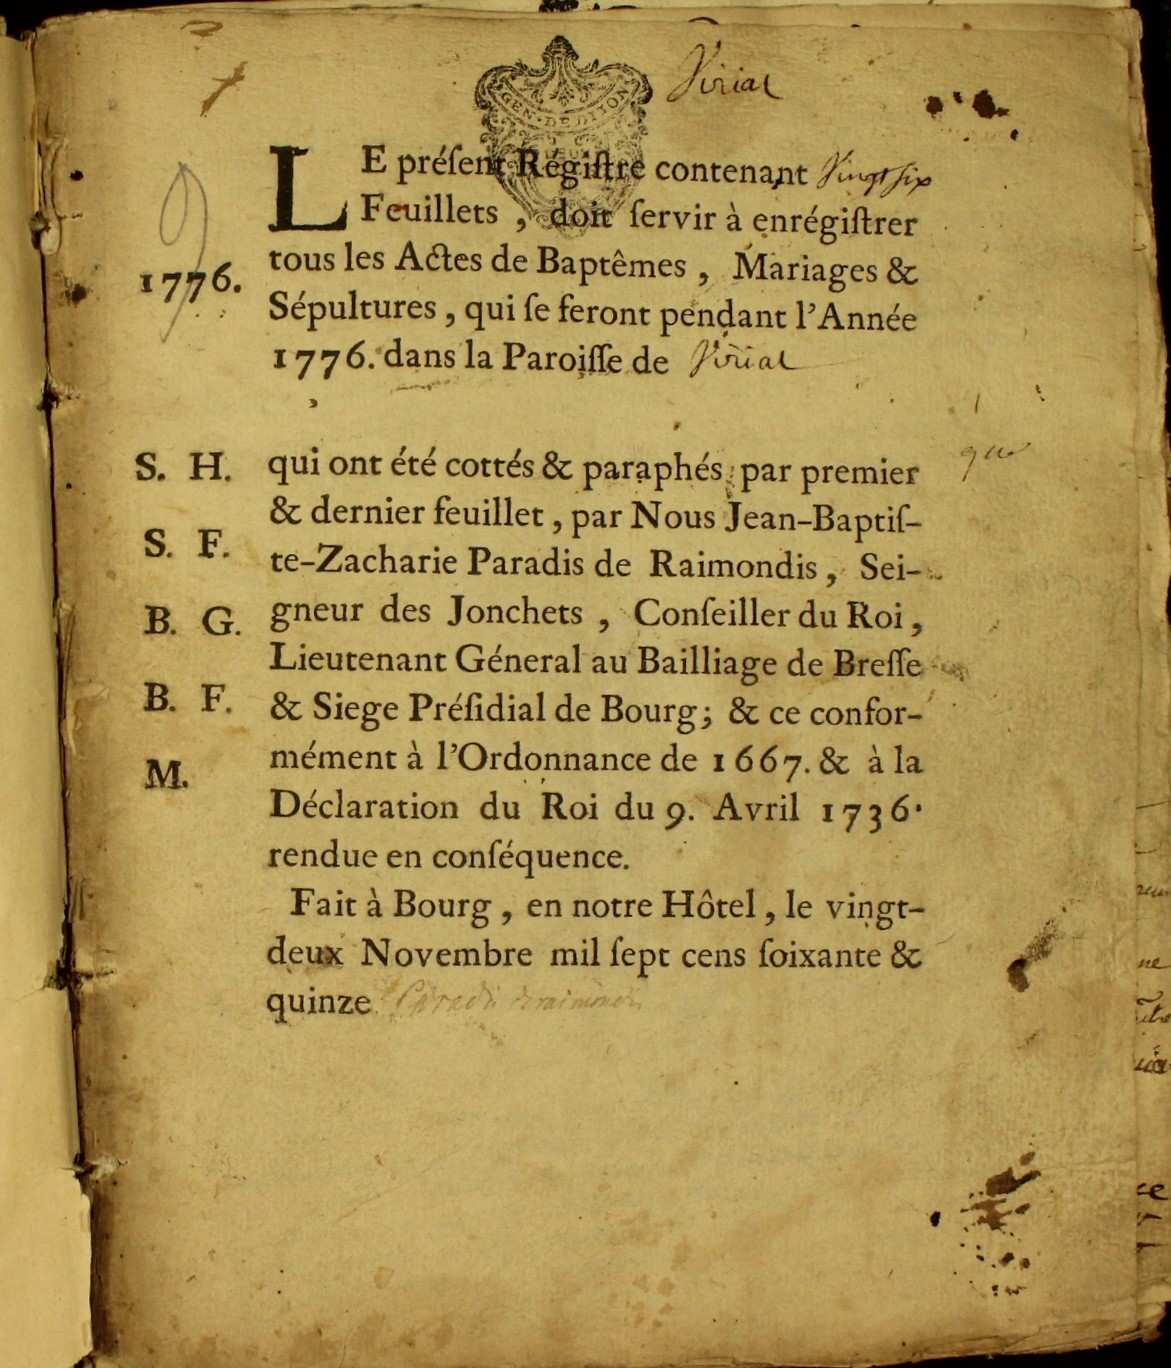 Virial
GEN·DE DIJON
LE préſent Régiſtre contenant Vingt ſix
Feuillets, doit ſervir à enrégiſtrer
tous les Actes de Baptêmes, Mariages &
1776.
Sépultures, qui ſe feront pendant l'Année
1776. dans la Paroiſſe de Virial
S. H.
qui ont été cottés & paraphés par premier
& dernier feuillet, par Nous Jean-Baptiſ-
S. F.
te-Zacharie Paradis de Raimondis, Sei-
B. G.
gneur des Jonchets, Conſeiller du Roi,
Lieutenant Géneral au Bailliage de Breſſe
B. F.
& Siege Préſidial de Bourg; & ce confor-
M.
mément à l'Ordonnance de 1667. & à la
Déclaration du Roi du 9. Avril 1736.
rendue en conſéquence.
Fait à Bourg, en notre Hôtel, le vingt-
deux Novembre mil ſept cens ſoixante &
quinze Paradis de raimondis